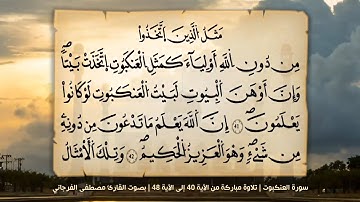 مَثَلُ الَّذِينَ اتَّخَذُوا
مِن دُونِ اللَّهِ أَوْلِيَاءَ كَمَثَلِ الْعَنكَبُوتِ اتَّخَذَتْ بَيْتًا ۖ
وَإِنَّ أَوْهَنَ الْبُيُوتِ لَبَيْتُ الْعَنكَبُوتِ لَوْ كَانُوا
يَعْلَمُونَ ﴿٤١﴾ إِنَّ اللَّهَ يَعْلَمُ مَا تَدْعُونَ مِن دُونِهِ
مِن شَيْءٍ ۚ وَهُوَ الْعَزِيزُ الْحَكِيمُ ﴿٤٢﴾ وَتِلْكَ الْأَمْثَالُ
سورة العنكبوت | تلاوة مباركة من الآية 40 إلى الآية 48 | بصوت القارئ مصطفى الفرجاني